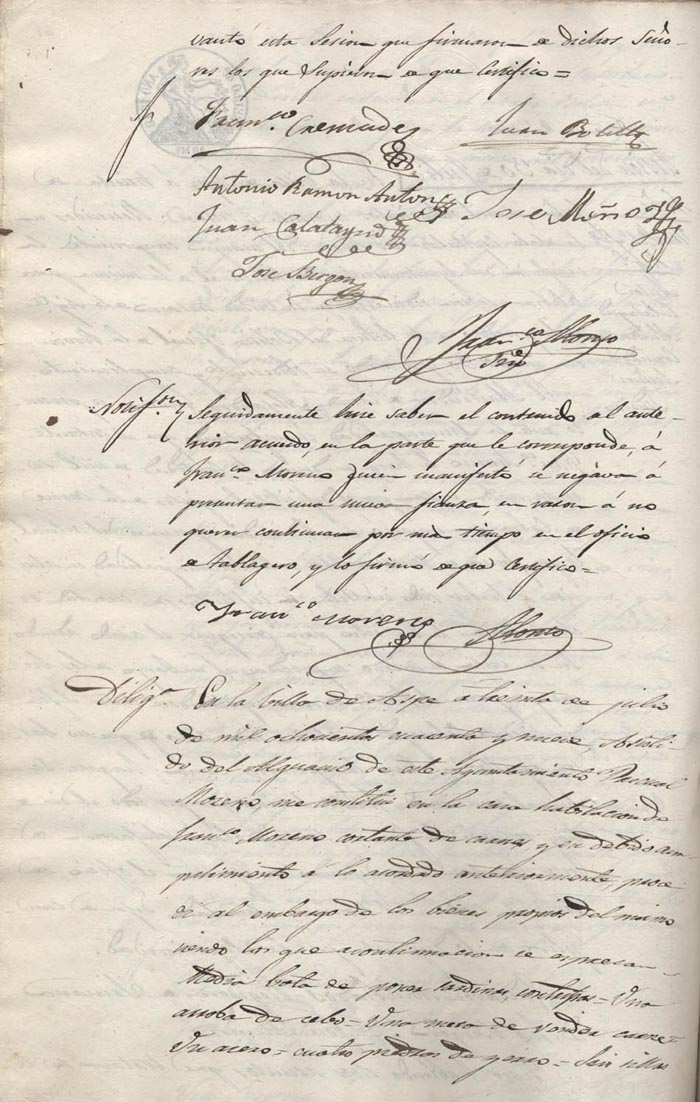 vantó esta Sesion que firmaron de dichos Seño-
res los que Supieron de que Certifico=
Fran.co Cremades Juan Botella
Antonio Ramon Anton José Muñoz
Juan Calatayud
Jose Berzon
Fran.co Alonso
Srio
Notif.on Seguidamente hice saber el contenido al ante-
rior acuerdo, en la parte que le corresponde, á
Fran.co Moreno quien manifestó se negava á
presentar una nueva fianza, en razon á no
querer continuar por mas tiempo en el oficio
de tablagero, y lo firmó de que Certifico=
Fran.co Moreno Alonso
Dilig.a En la Villa de Aspe a treinta de julio
de mil ochocientos cuarenta y nueve Asisti-
do del Alguacil de este Ayuntamiento Pascual
Moreno, me constitui en la casa habitacion de
Fran.co Moreno cortante de carnes y en debido cum-
plimiento á lo acordado anteriormente, proce-
dí al embargo de los bienes propios del mismo
siendo los que acontinuacion se espresan
Media bota de poner sardinas Una
arroba de cebo= Una mesa de vender carne=
Un acero= cuatro piedras de yeso= Seis sillas